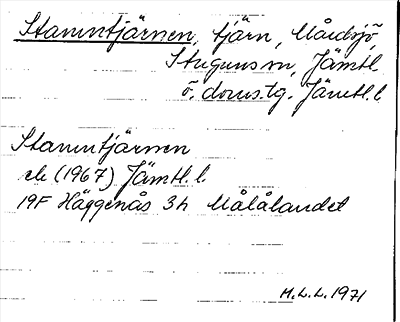 Stamntjärnen, tjärn, Mårdsjö,
Stuguns sn, Jämtl.
ö. doms.tg. Jämtl. l.
Stamntjärnen
ek (1967) Jämtl. l.
19F Häggenås 3h Målålandet
M.L.L. 1971